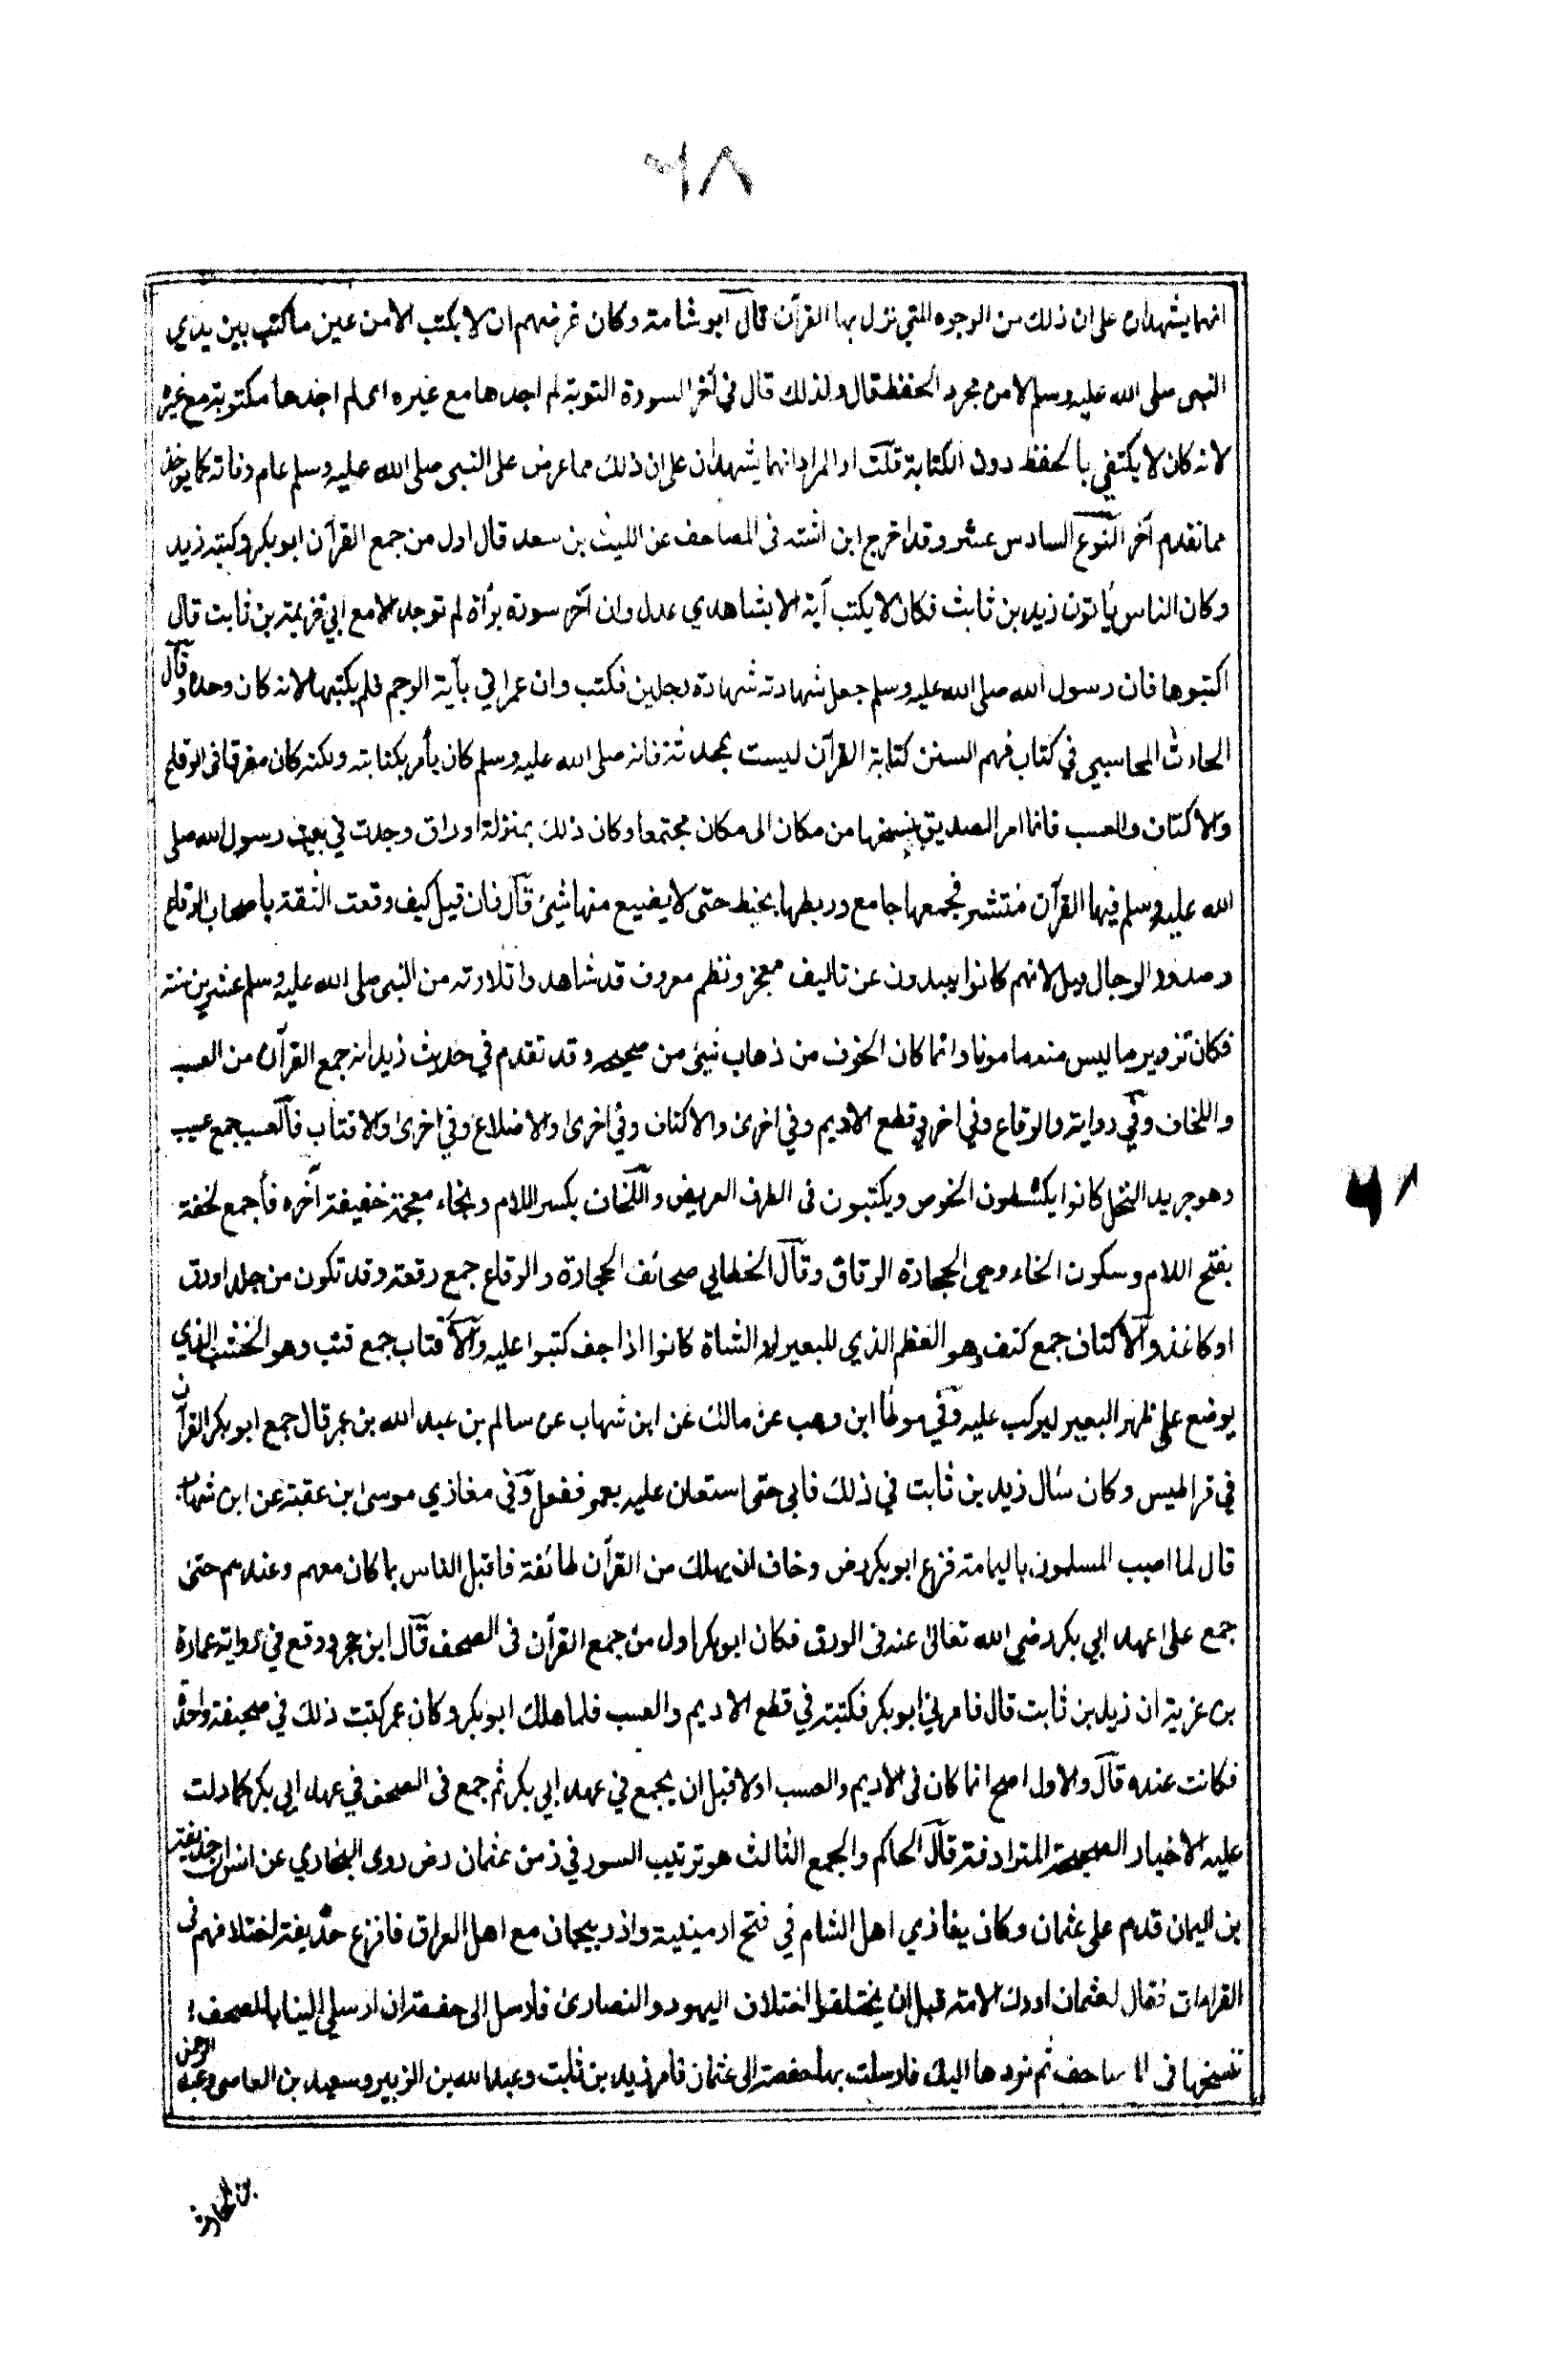 ٦٨
انهما يشهدان على ان ذلك من الوجوه التي نزل بها القرآن قال ابو شامة وكان غرضهم ان لا يكتب الا من عين ما كتب بين يدي
النبي صلى الله عليه وسلم لا من مجرد الحفظ قال ولذلك قال في آخر السورة التوبة لم اجدها مع غيره اى لم اجدها مكتوبة مع غيره
لانه كان لا يكتفي بالحفظ دون الكتابة قلت او المراد انهما يشهدان على ان ذلك مما عرض على النبي صلى الله عليه وسلم عام وفاته كما يوخذ
مما تقدم آخر النوع السادس عشر وقد اخرج ابن اشته فى المصاحف عن الليث بن سعد قال اول من جمع القرآن ابو بكر وكتبه زيد
وكان الناس يأتون زيد بن ثابت فكان لا يكتب آية الا بشاهدي عدل وان آخر سورة برأة لم توجد الا مع ابي خزيمة بن ثابت قال
اكتبوها فان رسول الله صلى الله عليه وسلم جعل شهادته شهادة رجلين فكتب وان عمر اتي بآية الرجم فلم يكتبها لانه كان وحده وقال
الحارث المحاسبي في كتاب فهم السنن كتابة القرآن ليست بمحدثة فانه صلى الله عليه وسلم كان يأمر بكتابته ولكنه كان مفرقا فى الرقاع
والاكتاف والعسب فانما امر الصديق بنسخها من مكان الى مكان مجتمعا وكان ذلك بمنزلة اوراق وجدت في بيت رسول الله صلى
الله عليه وسلم فيها القرآن منتشر فجمعها جامع وربطها بخيط حتى لا يضيع منها شيئ قال فان قيل كيف وقعت الثقة باصحاب الرقاع
وصدور الرجال قيل لانهم كانوا يبدون عن تاليف معجز ونظم معروف قد شاهدوا تلاوته من النبي صلى الله عليه وسلم عشرين سنة
فكان تزوير ما ليس منه مامونا وانما كان الخوف من ذهاب شيئ من صحيحه وقد تقدم في حديث زيد انه جمع القرآن من العسب
واللخاف وفي رواية والرقاع وفي اخرى قطع الاديم وفي اخرى والاكتاف وفي اخرى والاضلاع وفي اخرى والاقتاب فالعسب جمع عسيب
وهو جريد النخل كانوا يكشطون الخوص ويكتبون فى الطرف العريض واللخاف بكسر اللام وبخاء معجمة خفيفة آخره فأ جمع لخفة
بفتح اللام وسكون الخاء وهى الحجارة الرقاق وقال الخطابي صحائف الحجارة والرقاع جمع رقعة وقد تكون من جلد او رق
او كاغذ والاكتاف جمع كتف وهو العظم الذي للبعير او الشاة كانوا اذا جف كتبوا عليه والاقتاب جمع قتب وهو الخشب الذي
يوضع على ظهر البعير ليركب عليه وفي موطأ ابن وهب عن مالك عن ابن شهاب عن سالم بن عبد الله بن عمر قال جمع ابو بكر القرآن
في قراطيس وكان سأل زيد بن ثابت في ذلك فابى حتى استعان عليه بعمر ففعل وفي مغازي موسى بن عقبة عن ابن شهاب
قال لما اصيب المسلمون باليمامة فزع ابو بكر رض وخاف ان يهلك من القرآن طائفة فاقبل الناس بما كان معهم وعندهم حتى
جمع على اعهد ابي بكر رضي الله تعالى عنه فى الورق فكان ابو بكر اول من جمع القرآن فى الصحف قال ابن حجر ووقع في رواية عمارة
بن غزية ان زيد بن ثابت قال فامرني ابو بكر فكتبته في قطع الاديم والعسب فلما هلك ابو بكر وكان عمر كتبت ذلك في صحيفة واحدة
فكانت عنده قال والاول اصح انما كان فى الاديم والعسب اولا قبل ان يجمع في عهد ابي بكر ثم جمع فى الصحف في عهد ابي بكر كما دلت
عليه الاخبار الصحيحة المترادفة قال الحاكم والجمع الثالث هو ترتيب السور في زمن عثمان رض روى البخاري عن انس ان حذيفة
بن اليمان قدم على عثمان وكان يغازي اهل الشام في فتح ارمينية واذربيجان مع اهل العراق فافزع حذيفة اختلافهم فى
القراءات فقال لعثمان ادرك الامة قبل ان يختلفوا اختلاف اليهود والنصارى فارسل الى حفصة ان ارسلي الينا بالصحف
ننسخها فى المصاحف ثم نردها اليك فارسلت بها حفصة الى عثمان فامر زيد بن ثابت وعبد الله بن الزبير وسعيد بن العاص وعبد الرحمن
بن الحارث
٦٨